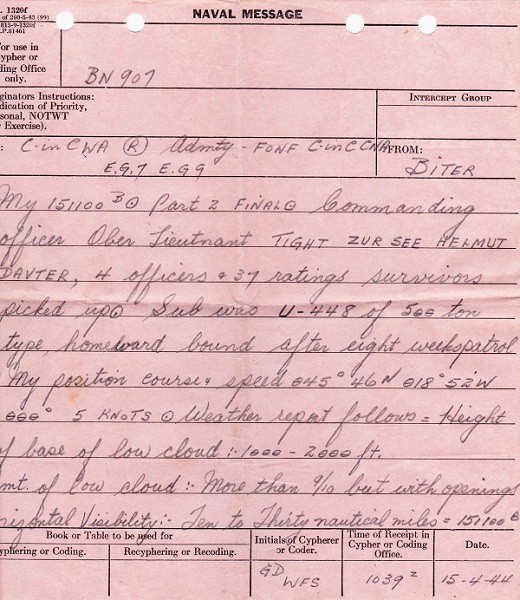 . 1320f
of 260-5-43 (99)
815-9-1320f
L.P.81461
NAVAL MESSAGE
For use in
ypher or
ding Office
only.
BN 907
ginators Instructions:
dication of Priority,
rsonal, NOTWT
r Exercise).
INTERCEPT GROUP
: C-in C WA (R) Admty - FONF C-in C CNA FROM:
E.G.7 E.G 9 BITER
My 151100 B ⊙ Part 2 FINAL ⊙ Commanding
officer Ober Lieutnant TIGHT ZUR SEE HELMUT
DAUTER, 4 officers & 37 ratings survivors
picked up ⊙ Sub was U-448 of 500 ton
type, homeward bound after eight weeks patrol
My position course & speed 045° 46 N 018° 52 W
000° 5 KNOTS ⊙ Weather report follows = Height
of base of low cloud :- 1000 - 2000 ft.
mt. of low cloud :- More than 9/10 but with openings
rizontal Visibility :- Ten to Thirty nautical miles = 151100 B
Book or Table to be used for
yphering or Coding.
Recyphering or Recoding.
Initials of Cypherer
or Coder.
Time of Receipt in
Cypher or Coding
Office.
Date.
GD
WFS
1039 z
15-4-44